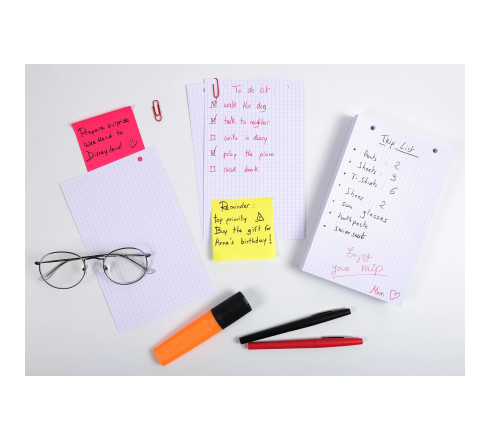 Prepare surprise
Weekend to
Disneyland
To do list:
walk the dog
talk to neighbor
write in diary
play the piano
read book
Reminder:
top priority
Buy the gift for
Anna's birthday!
Trip List
Pants 2
Shorts 3
T-Shirts 6
Shoes 2
sun glasses
toothpaste
swimsuit
Enjoy
your trip
Mom